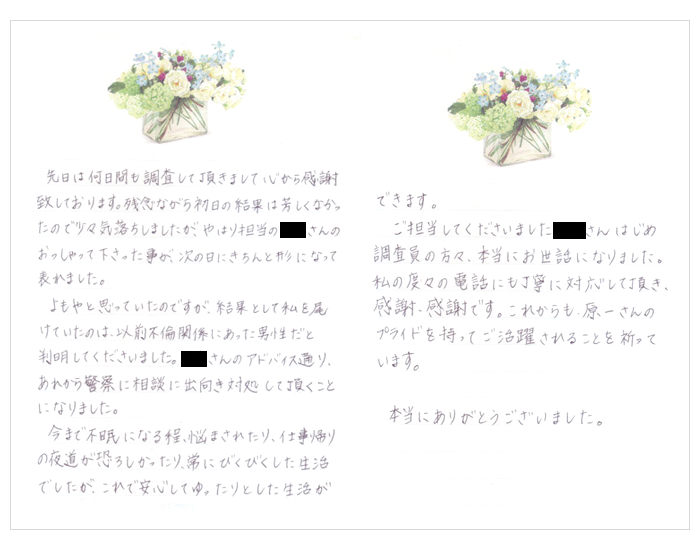 先日は何日間も調査して頂きまして心から感謝
致しております。残念ながら初日の結果は芳しくなかっ
たので少々気落ちしましたが、やはり担当の さんの
おっしゃって下さった事が、次の日にきちんと形になって
表れました。
よもやと思っていたのですが、結果として私を尾
けていたのは、以前不倫関係にあった男性だと
判明してくださいました。 さんのアドバイス通り、
あれから警察に相談に出向き対処して頂くこと
になりました。
今まで不眠になる程、悩まされたり、仕事帰り
の夜道が恐ろしかったり、常にびくびくした生活
でしたが、これで安心してゆったりとした生活が
できます。
ご担当してくださいました さんはじめ
調査員の方々、本当にお世話になりました。
私の度々の電話にも丁寧に対応して頂き、
感謝、感謝です。これからも、原一さんの
プライドを持ってご活躍されることを祈って
います。
本当にありがとうございました。